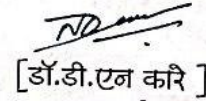 [डॉ.डी.एन कारे]